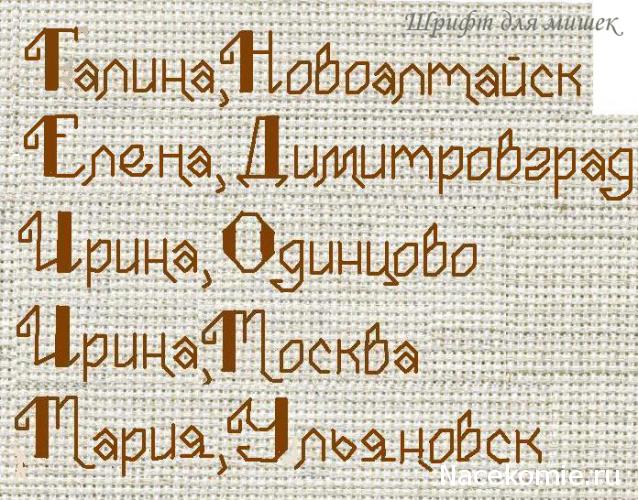 Шрифт для мишек
Галина, Новоалтайск
Елена, Димитровград
Ирина, Одинцово
Ирина, Москва
Мария, Ульяновск
Nacekomie.ru